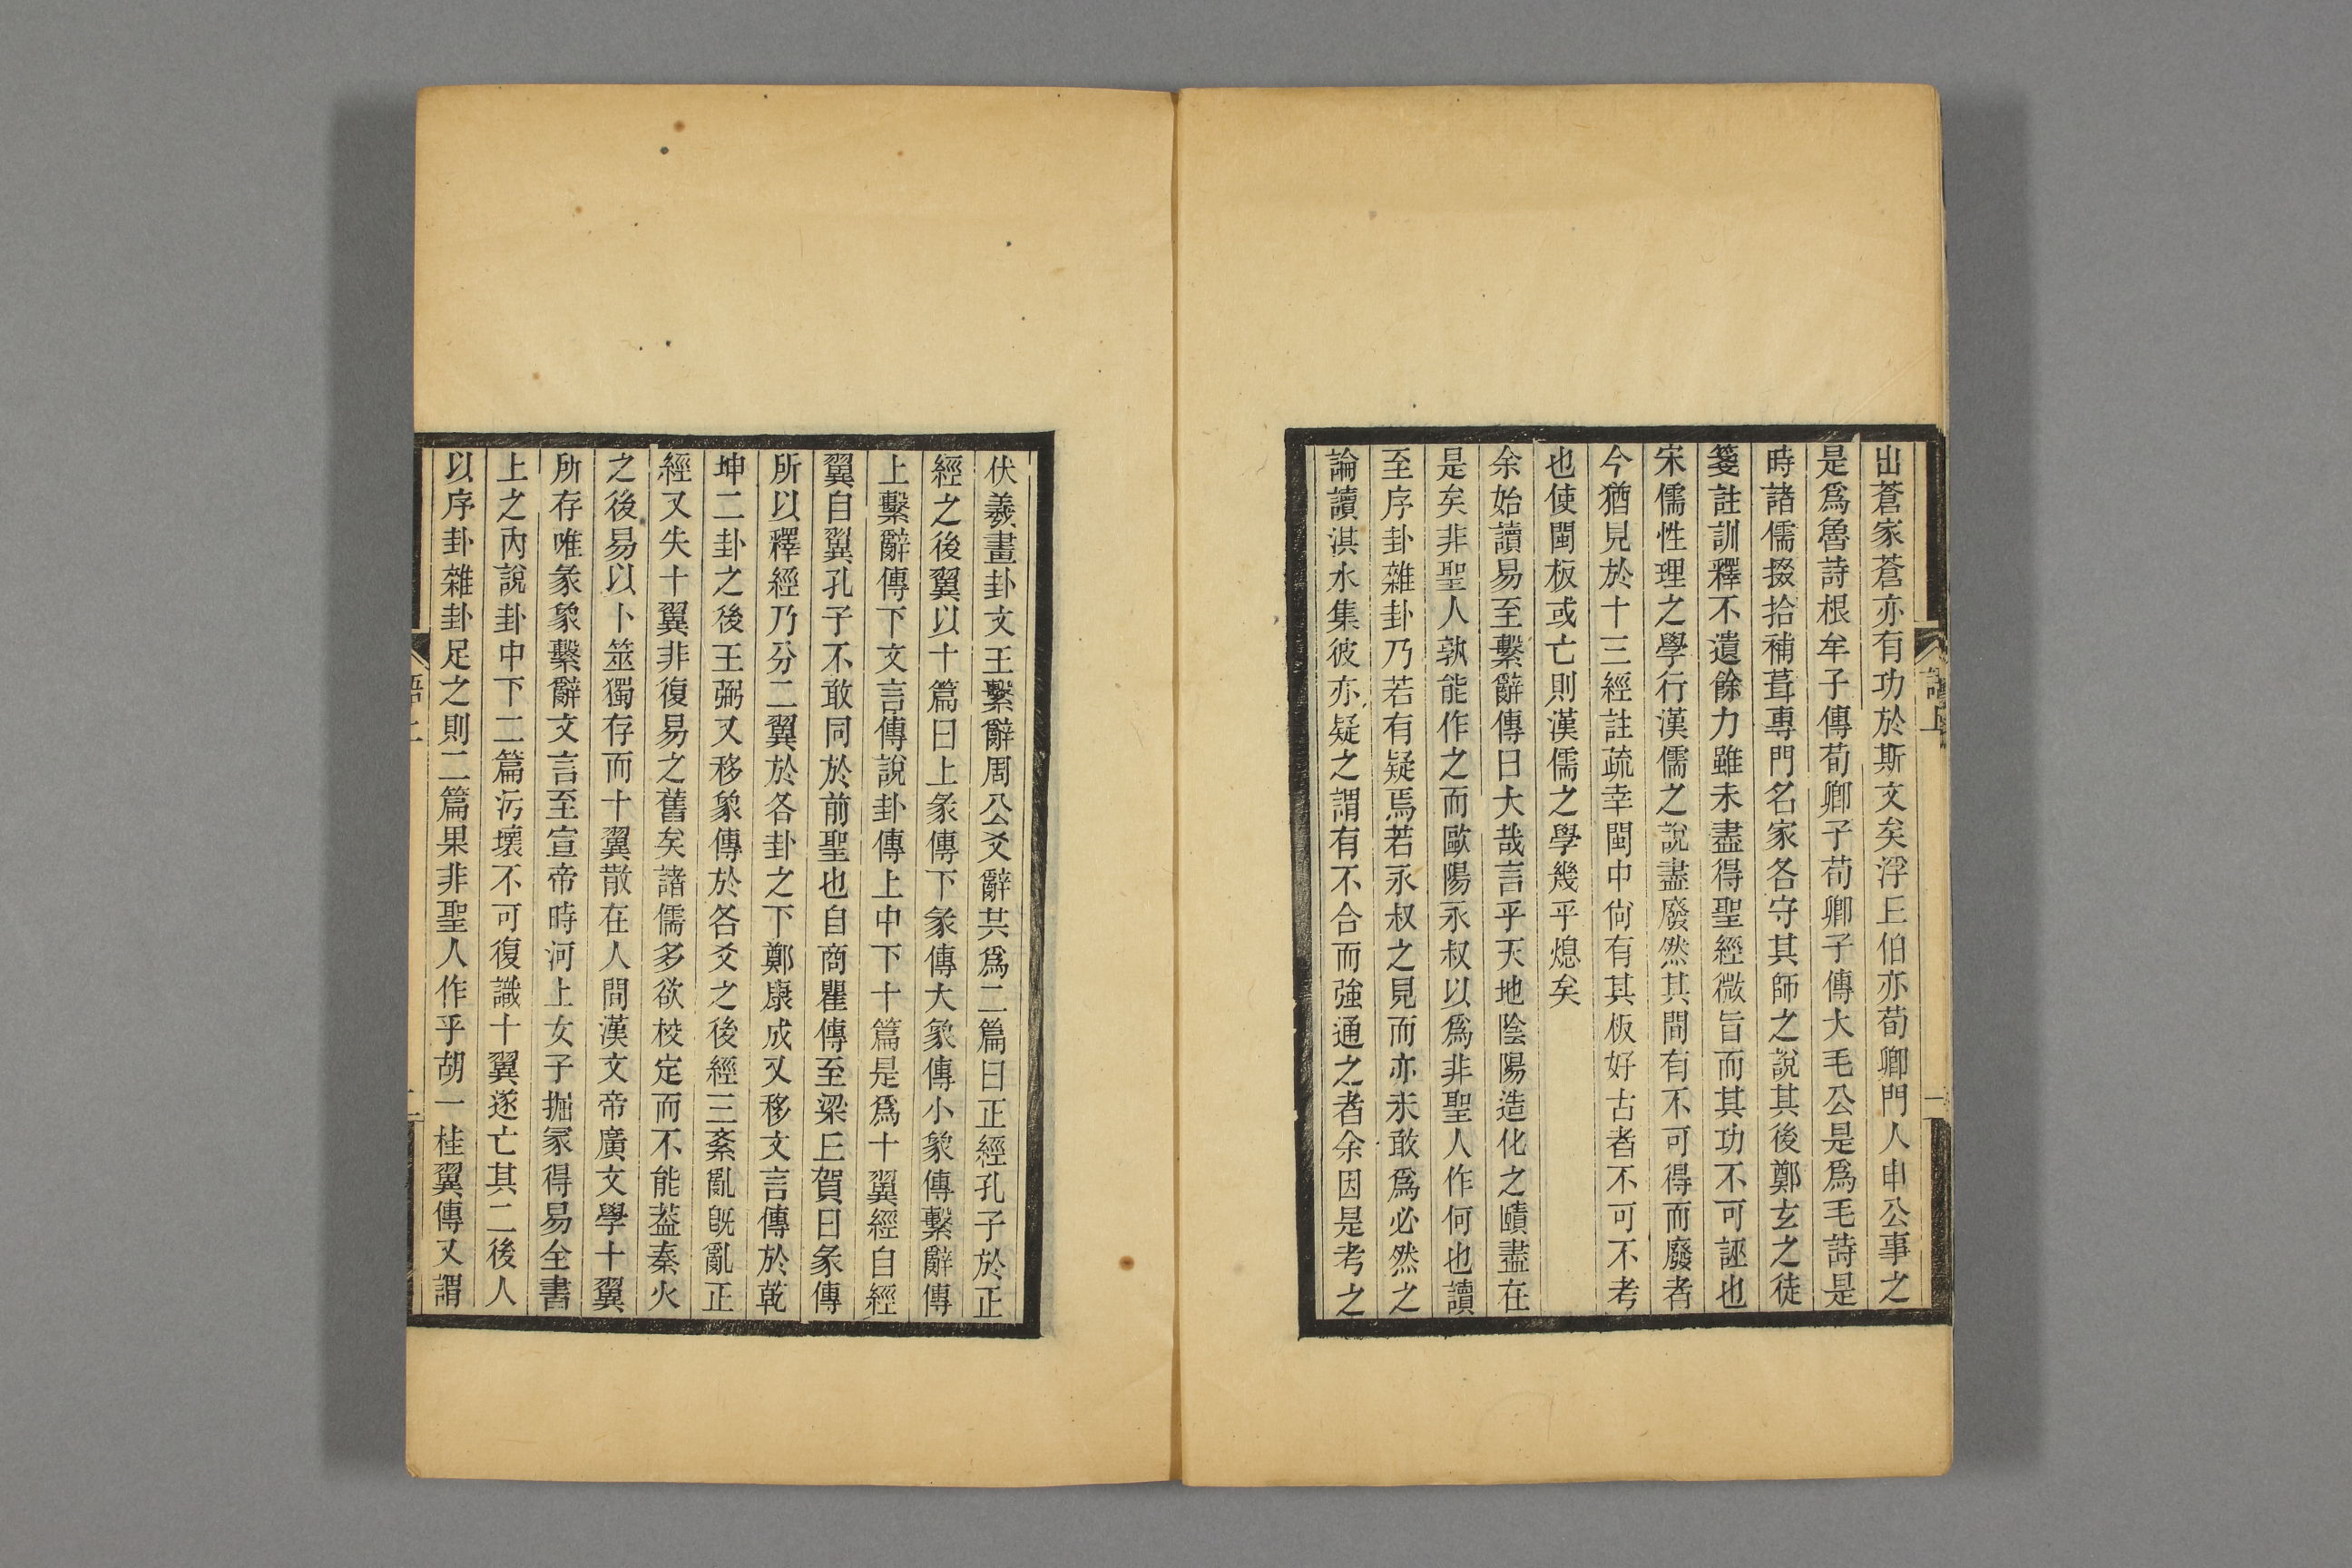 出蒼家蒼亦有功於斯文矣浮丘伯亦荀卿門人申公事之
是爲魯詩根牟子傳荀卿子荀卿子傳大毛公是爲毛詩是
時諸儒掇拾補葺專門名家各守其師之說其後鄭玄之徒
箋註訓釋不遺餘力雖未盡得聖經微旨而其功不可誣也
宋儒性理之學行漢儒之說盡廢然其間有不可得而廢者
今猶見於十三經註疏幸閩中尙有其板好古者不可不考
也使閩板或亡則漢儒之學幾乎熄矣
余始讀易至繫辭傳曰大哉言乎天地陰陽造化之賾盡在
是矣非聖人孰能作之而歐陽永叔以爲非聖人作何也讀
至序卦雜卦乃若有疑焉若永叔之見而亦未敢爲必然之
論讀淇水集彼亦疑之謂有不合而強通之者余因是考之
語上
一
伏羲畫卦文王繫辭周公爻辭共爲二篇曰正經孔子於正
經之後翼以十篇曰上彖傳下彖傳大象傳小象傳繫辭傳
上繫辭傳下文言傳說卦傳上中下十篇是爲十翼經自經
翼自翼孔子不敢同於前聖也自商瞿傳至梁丘賀曰彖傳
所以釋經乃分二翼於各卦之下鄭康成又移文言傳於乾
坤二卦之後王弼又移象傳於各爻之後經三紊亂旣亂正
經又失十翼非復易之舊矣諸儒多欲校定而不能葢秦火
之後易以卜筮獨存而十翼散在人間漢文帝廣文學十翼
所存唯彖象繫辭文言至宣帝時河上女子掘冢得易全書
上之內說卦中下二篇污壞不可復識十翼遂亡其二後人
以序卦雜卦足之則二篇果非聖人作乎胡一桂翼傳又謂
語上
二